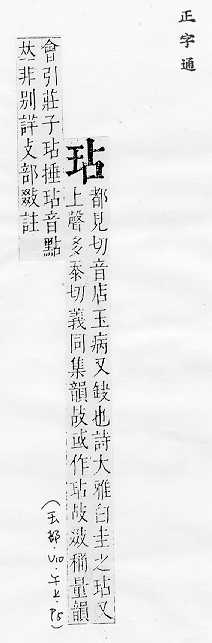 正字通
玷
都見切音店玉病又缺也詩大雅白圭之玷又
上聲多忝切義同集韻敁或作玷敁敪稱量韻
會引莊子玷捶玷音點
𠀤非別詳攴部敪註
(玉部.V10.午上.P5)